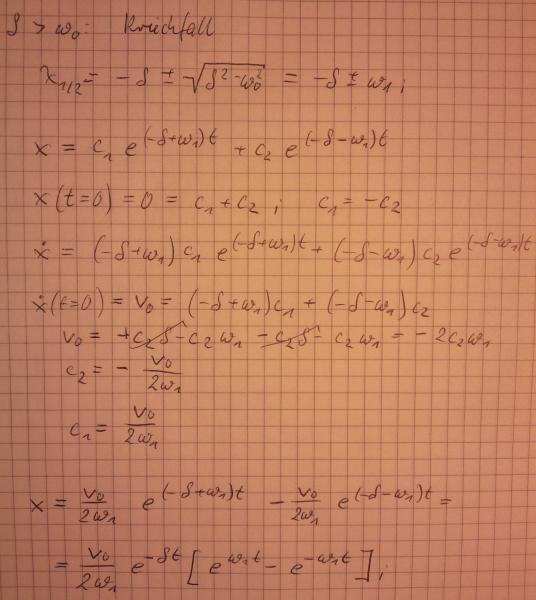 δ > ω₀: Kriechfall
λ₁/₂ = -δ ± √(δ² - ω₀²) = -δ ± ω₁ ;
x = c₁ e^((-δ+ω₁)t) + c₂ e^((-δ-ω₁)t)
x(t=0) = 0 = c₁ + c₂ ; c₁ = -c₂
ẋ = (-δ+ω₁) c₁ e^((-δ+ω₁)t) + (-δ-ω₁) c₂ e^((-δ-ω₁)t)
ẋ(t=0) = v₀ = (-δ+ω₁)c₁ + (-δ-ω₁) c₂
v₀ = +c₂δ - c₂ω₁ - c₂δ - c₂ω₁ = -2c₂ω₁
c₂ = - v₀/(2ω₁)
c₁ = v₀/(2ω₁)
x = v₀/(2ω₁) e^((-δ+ω₁)t) - v₀/(2ω₁) e^((-δ-ω₁)t) =
= v₀/(2ω₁) e^(-δt) [e^(ω₁t) - e^(-ω₁t)] ;